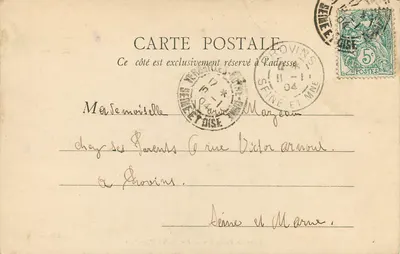 CARTE POSTALE
Ce côté est exclusivement réservé à l'adresse
PROVINS
11 - 1
04
SEINE ET MNE
SEINE ET OISE
5c
POSTES
Mademoiselle
chez ses Parents 6 rue Victor
a Provins
Seine et Marne